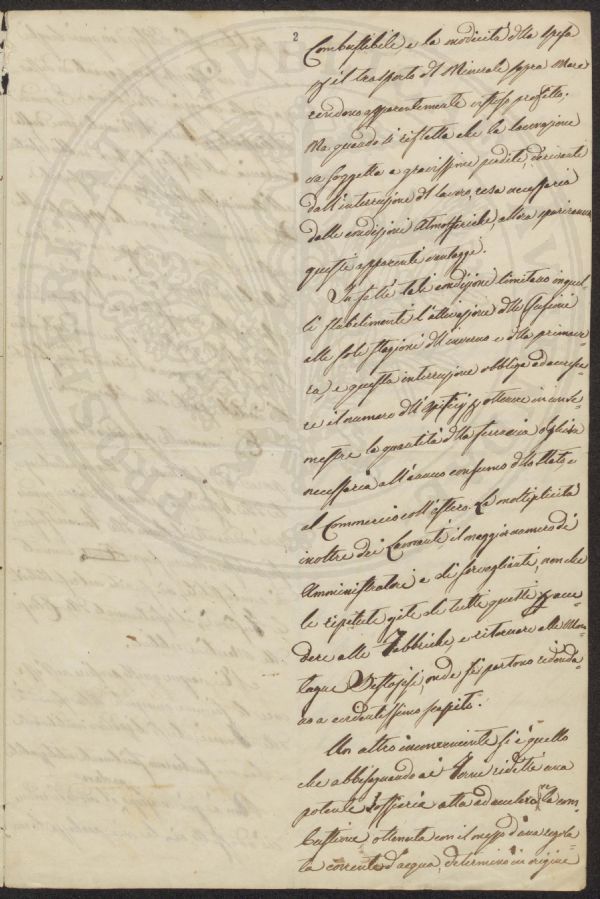 2
Combustibile e la modicità della spesa
p il trasporto del Minerale sopra Mare
rendono apparentemente vistoso profitto.
Ma quando si rifletta che la lavorazione
va soggetta a gravissime perdite, derivante
dall'interruzione del lavoro, resa necessaria
dalle condizioni Atmosferiche, allora spariranno
questi apparenti vantaggi.
In fatti tali condizioni limitano in quel-
li stabilimenti l'attivazione delle Fusioni
alle sole stagioni dell'inverno e della primave-
ra, e questa interruzione obbliga ad accresce-
re il numero degli Opificj p ottenere in un se-
mestre la quantità della ferraccia
necessaria all'annuo consumo dello Stato e
al Commercio coll'estero. La moltiplicità
inoltre dei Lavoranti il maggior numero di
Amministratori e di sorveglianti, non che
le ripetute gite di tutti questi p acce-
dere alle Fabbriche, e ritornare alle Mon-
tagne onde si partono ridonda-
no a evidentissimo scapito.
Un altro inconveniente si è quello
che abbisognando ai Forni una
potente Soffieria atta ad accelerare la com-
bustione ottenuta con il mezzo d'una regola-
ta corrente d'acqua, determinò in origine